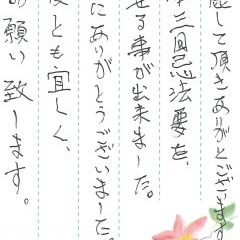 慮して頂きありがとございます
三回忌法要を、
せる事が出来ました。
にありがとうございました。
とも宜しく、
願い致します。